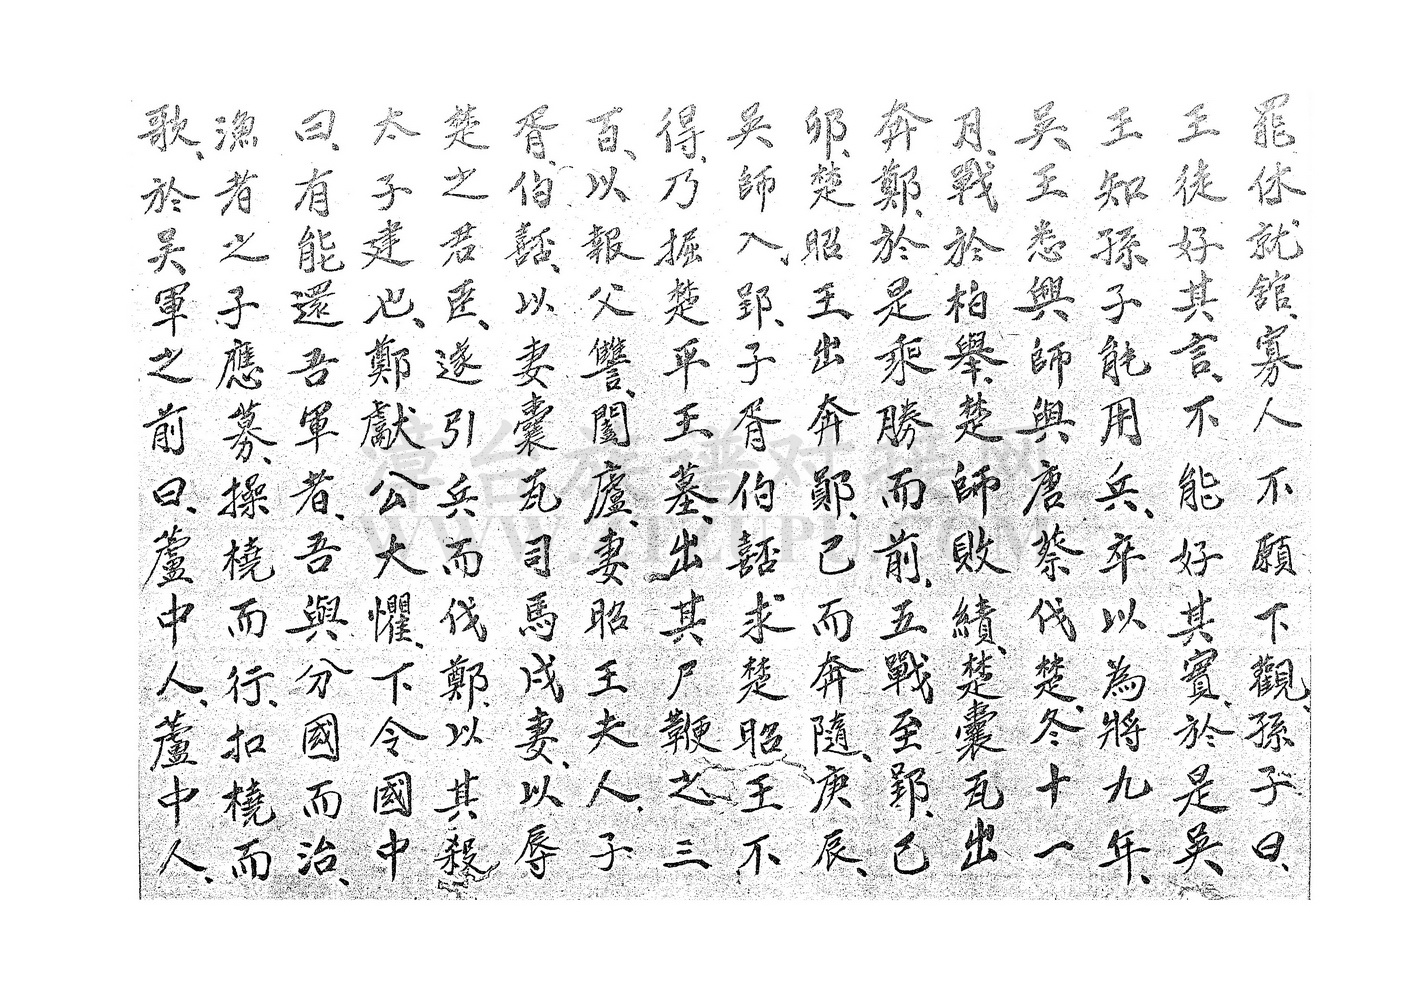 罷休就館、寡人不願下觀、孫子曰、
王徒好其言、不能好其實、於是吳
王知孫子能用兵、卒以為將九年、
吳王悉興師與唐蔡伐楚、冬十一
月、戰於柏舉、楚師敗績、楚囊瓦出
奔鄭、於是乘勝而前、五戰至郢、己
卯、楚昭王出奔鄖、已而奔隨、庚辰、
吳師入、郢、子胥伯嚭求楚昭王不
得、乃掘楚平王墓、出其尸鞭之三
百、以報父讐、闔廬、妻昭王夫人、子
胥、伯嚭、以妻囊瓦司馬戍妻、以辱
楚之君臣、遂引兵而伐鄭、以其殺
太子建也、鄭獻公大懼、下令國中
曰、有能還吾軍者、吾與分國而治、
漁者之子應募、操橈而行、扣橈而
歌、於吳軍之前曰、蘆中人、蘆中人、
漳台族谱对接网
WWW.ZTZUPU.COM